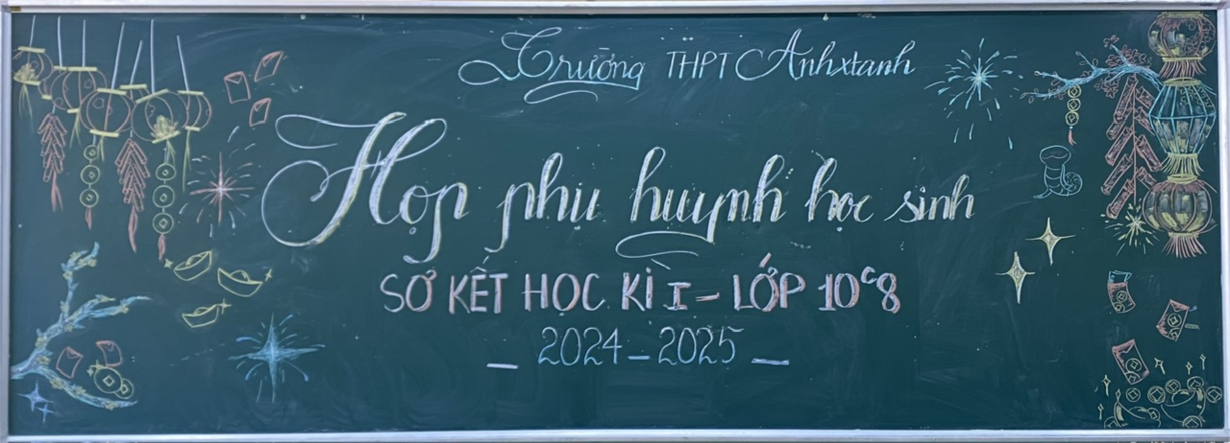 Trường THPT Anhxtanh
Họp phụ huynh học sinh
SƠ KẾT HỌC KÌ I - LỚP 10C8
_ 2024 - 2025 _